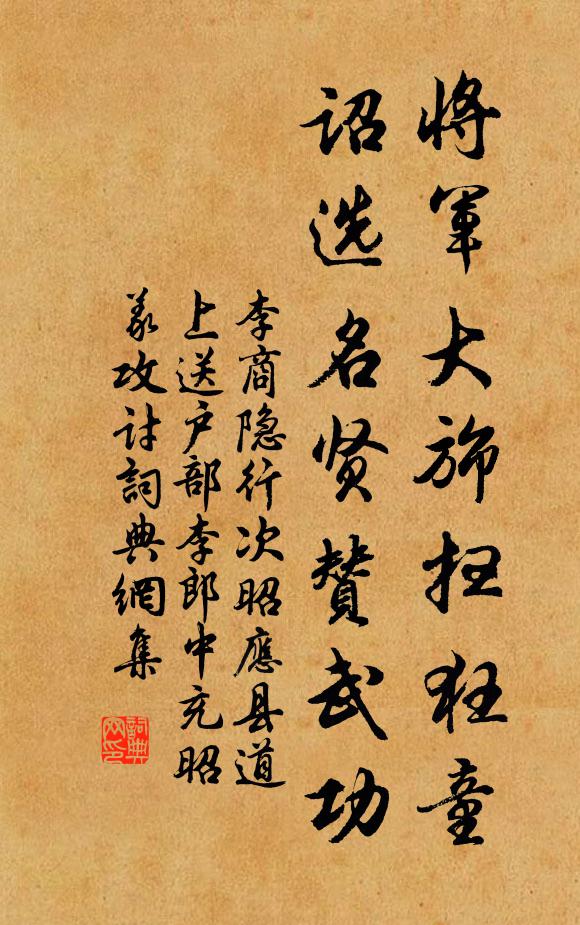 将军大旆扫狂童
诏选名贤赞武功
李商隐行次昭應县道
上送户部李郎中充昭
义攻讨詞典網集
詞典网印